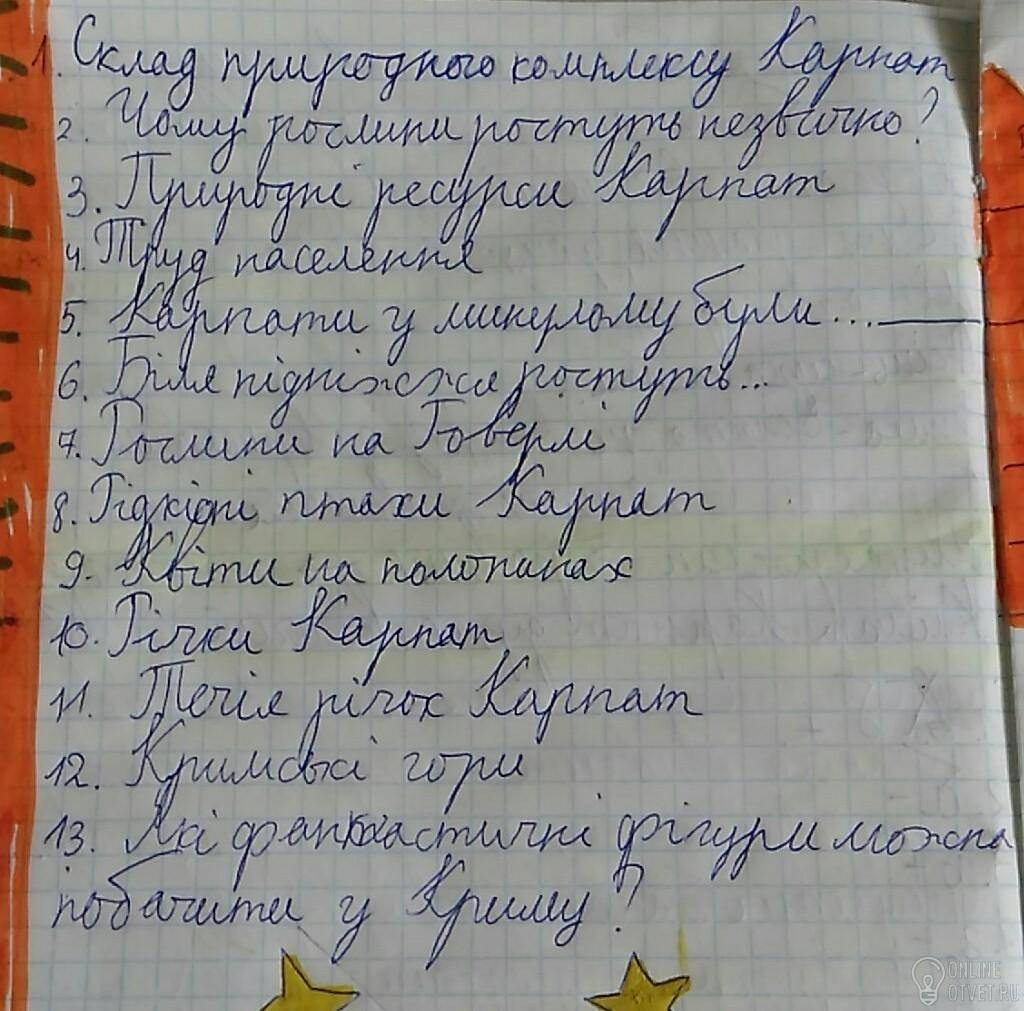 1. Склад природного комплексу Карпат
2. Чому рослини ростуть незвично?
3. Природні ресурси Карпат
4. Труд населення
5. Карпати у минулому були...____
6. Біля підніжжя ростуть...
7. Рослини на Говерлі
8. Рідкідні птахи Карпат
9. Квіти на полонинах
10. Річки Карпат
11. Течія річок Карпат
12. Кримські гори
13. Які фантастичні фігури можна
побачити у Криму?
ONLINE
OTVET.RU